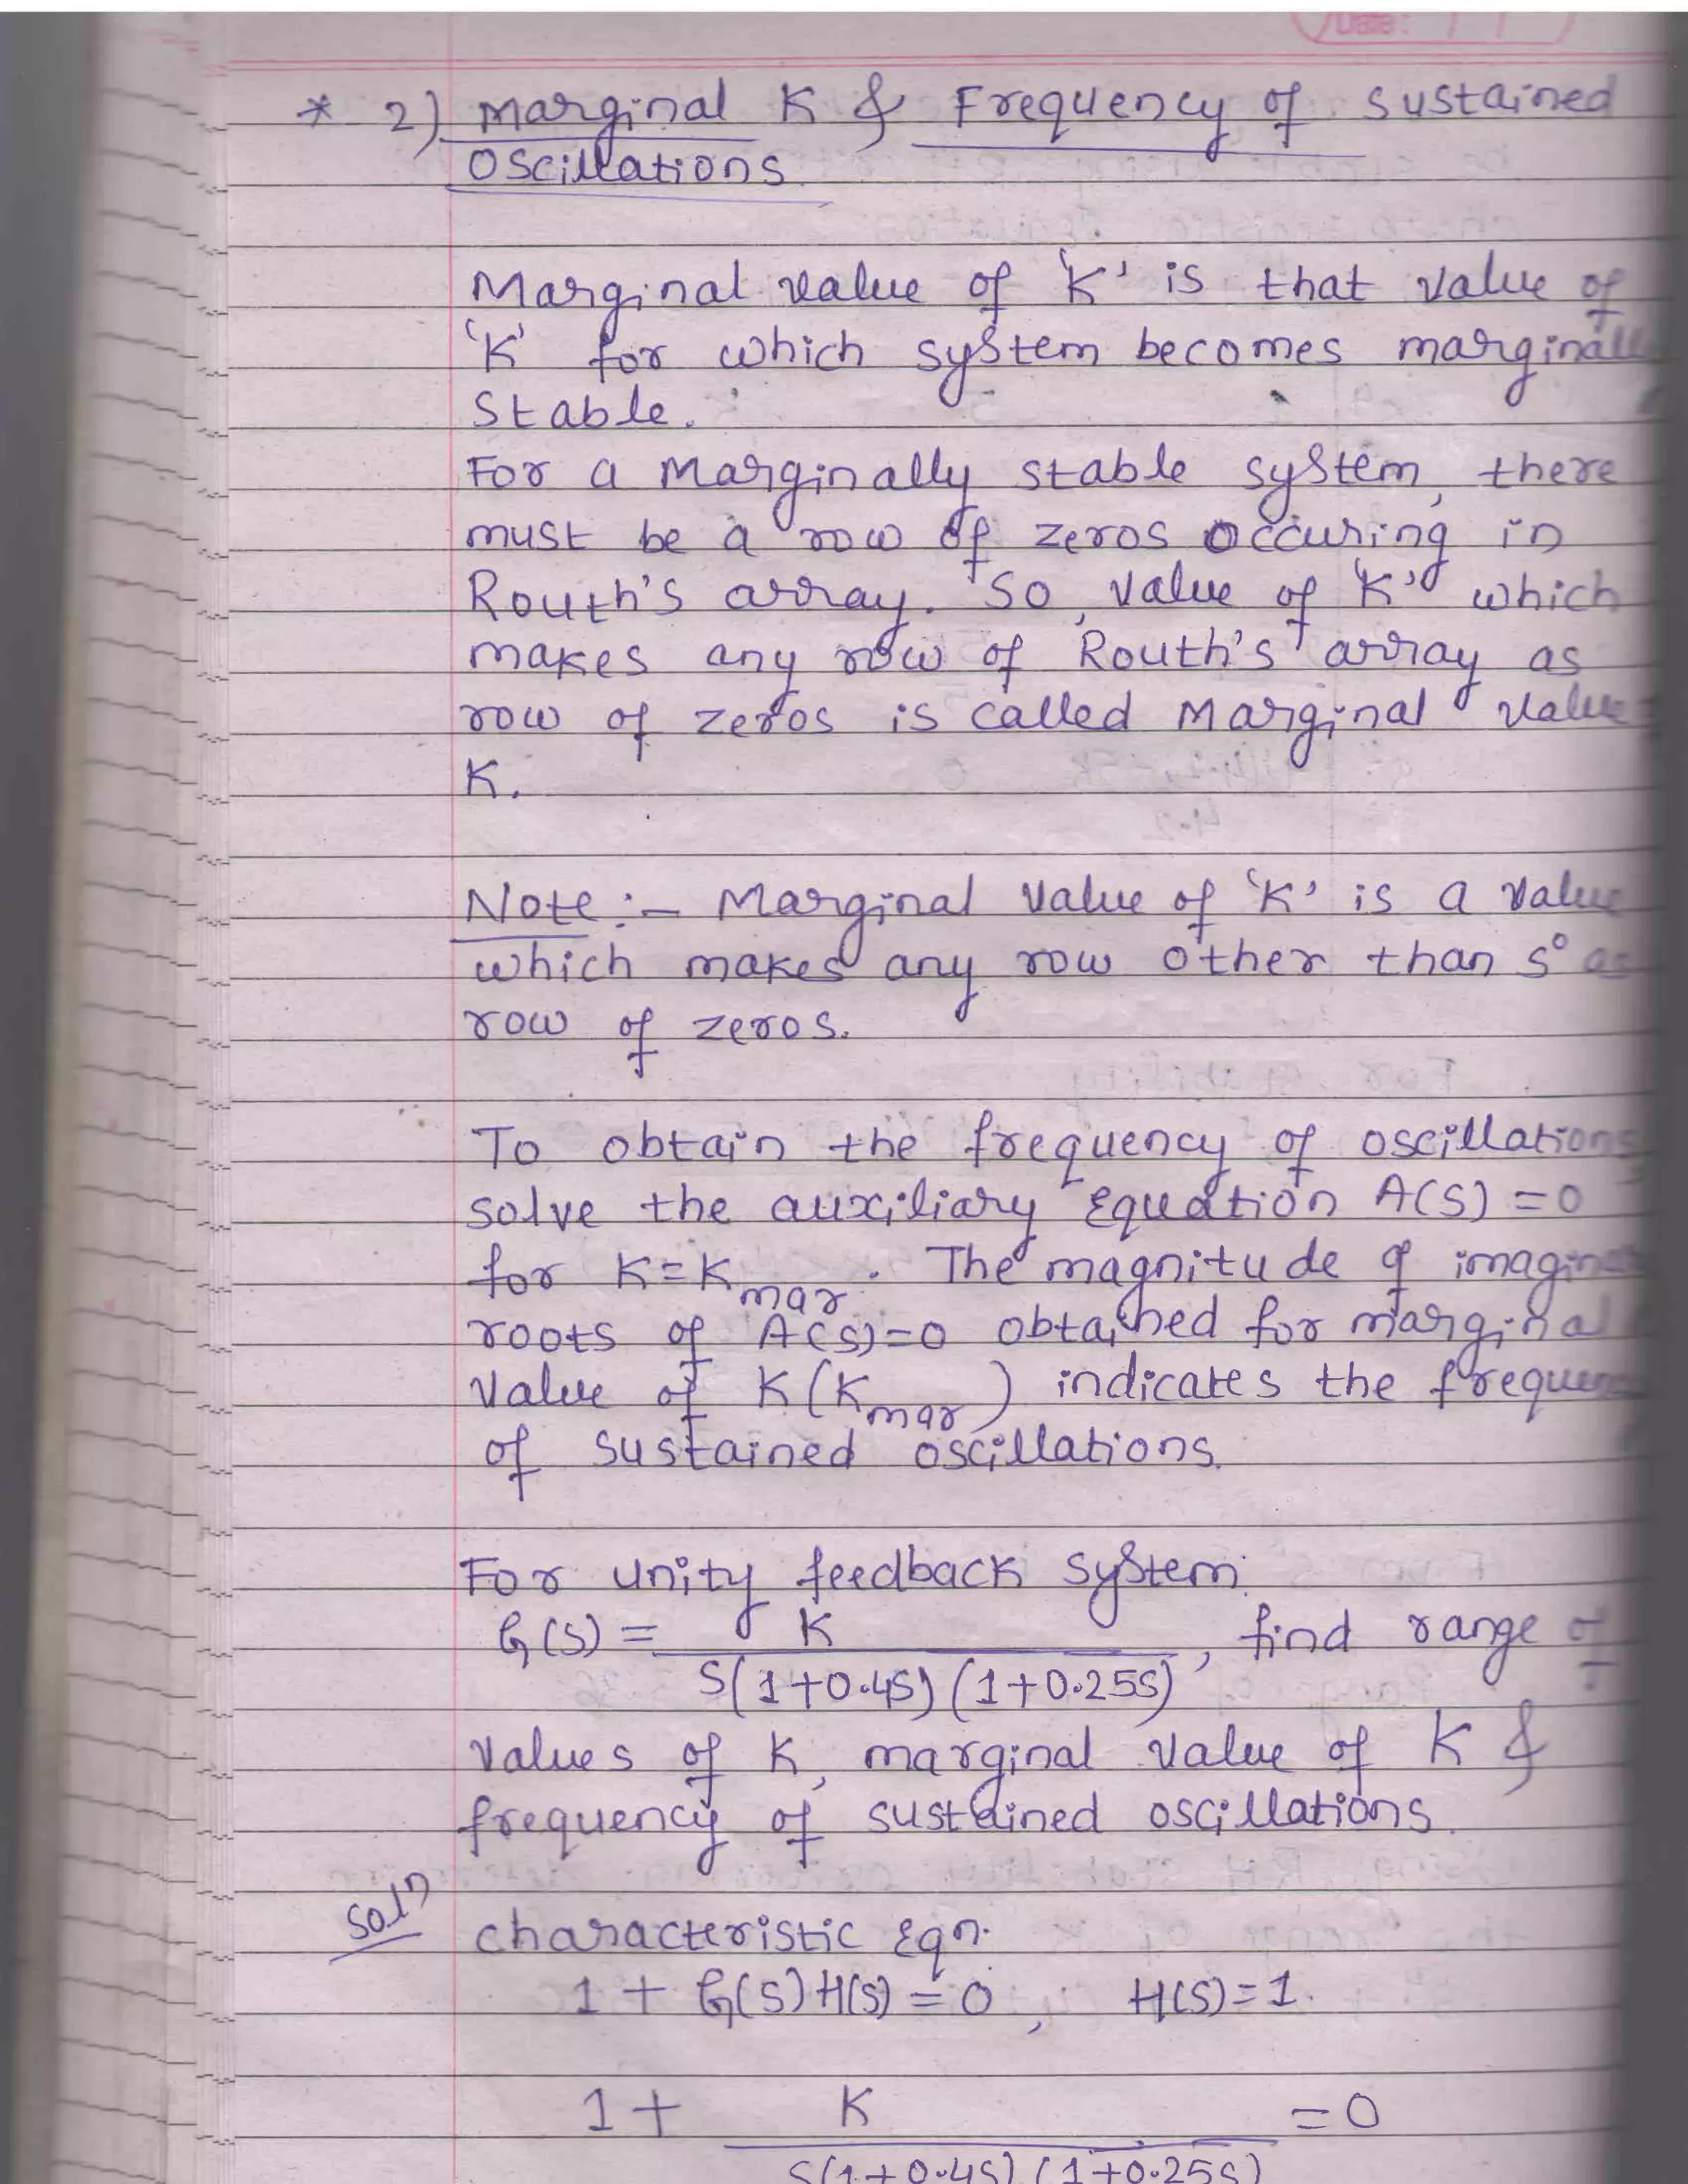 Date:
* 2) Marginal K & Frequency of sustained
Oscillations.
Marginal value of 'K' is that value of
'K' for which system becomes marginall
stable.
For a Marginally stable system, there
must be a row of zeros occuring in
Routh's array. So, value of 'K' which
makes any row of Routh's array as
row of zeros is called Marginal value
K.
Note :- Marginal value of 'K' is a value
which makes any row other than s⁰ as
row of zeros.
To obtain the frequency of oscillations
solve the auxiliary equation A(s) = 0
for K = Kmar. The magnitude of imagin
roots of A(s)=0 obtained for marginal
value of K (Kmar) indicates the frequen
of sustained oscillations.
For unity feedback system.
G(s) = K / S(1+0.4S) (1+0.25S), find range of
values of K, marginal value of K &
frequency of sustained oscillations.
Soln
characteristic Eqn.
1 + G(s) H(s) = 0, H(s) = 1.
1 + K / S(1+0.4S) (1+0.25S) = 0